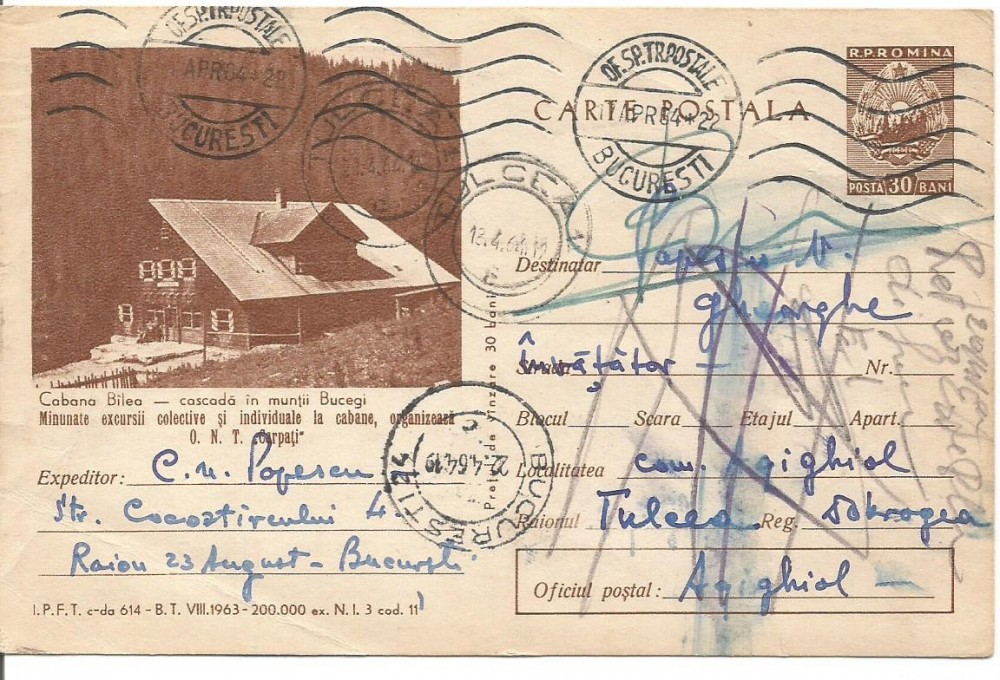 OF.SP.TR.POSTALE
APR64*22
BUCURESTI
OF.SP.TR.POSTALE
APR64*22
BUCURESTI
R.P.ROMINA
POSTA 30 BANI
CARTE POSTALA
TULCEA
TULCEA
13.4.64.
Cabana Bîlea — cascadă în munții Bucegi
Minunate excursii colective și individuale la cabane, organizează
O. N. T. "Carpați"
Expeditor: C. N. Popescu
Str. Cocoatircului 4
Raion 23 August - București
I.P.F.T. c-da 614 - B.T. VIII.1963 - 200.000 ex. N.I. 3 cod. 11
Prețul de vînzare 30 bani
BUCURESTI
22.4.64.19
Destinatar Popescu N.
Gheorghe
Strada Învățător - Nr.
Blocul Scara Etajul Apart.
Localitatea com. Agighiol
Raionul Tulcea Reg. Dobrogea
Oficiul poștal: Agighiol —